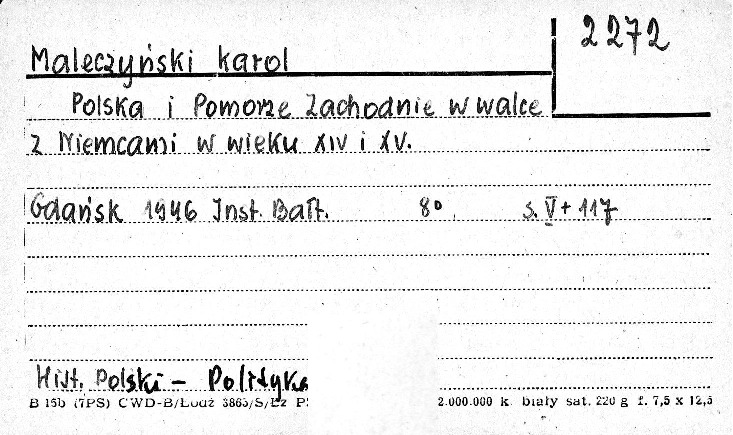 2272
Maleczyński Karol
Polska i Pomorze Zachodnie w walce
z Niemcami w wieku XIV i XV.
Gdańsk 1946 Inst. Bałt. 8° s. V + 117
Hist. Polski - Polityka
B 15b (7PS) CWD-B/Łódź 3865/S/Łz P. 2.000.000 k. biały sat. 220 g f. 7,5 x 12,5